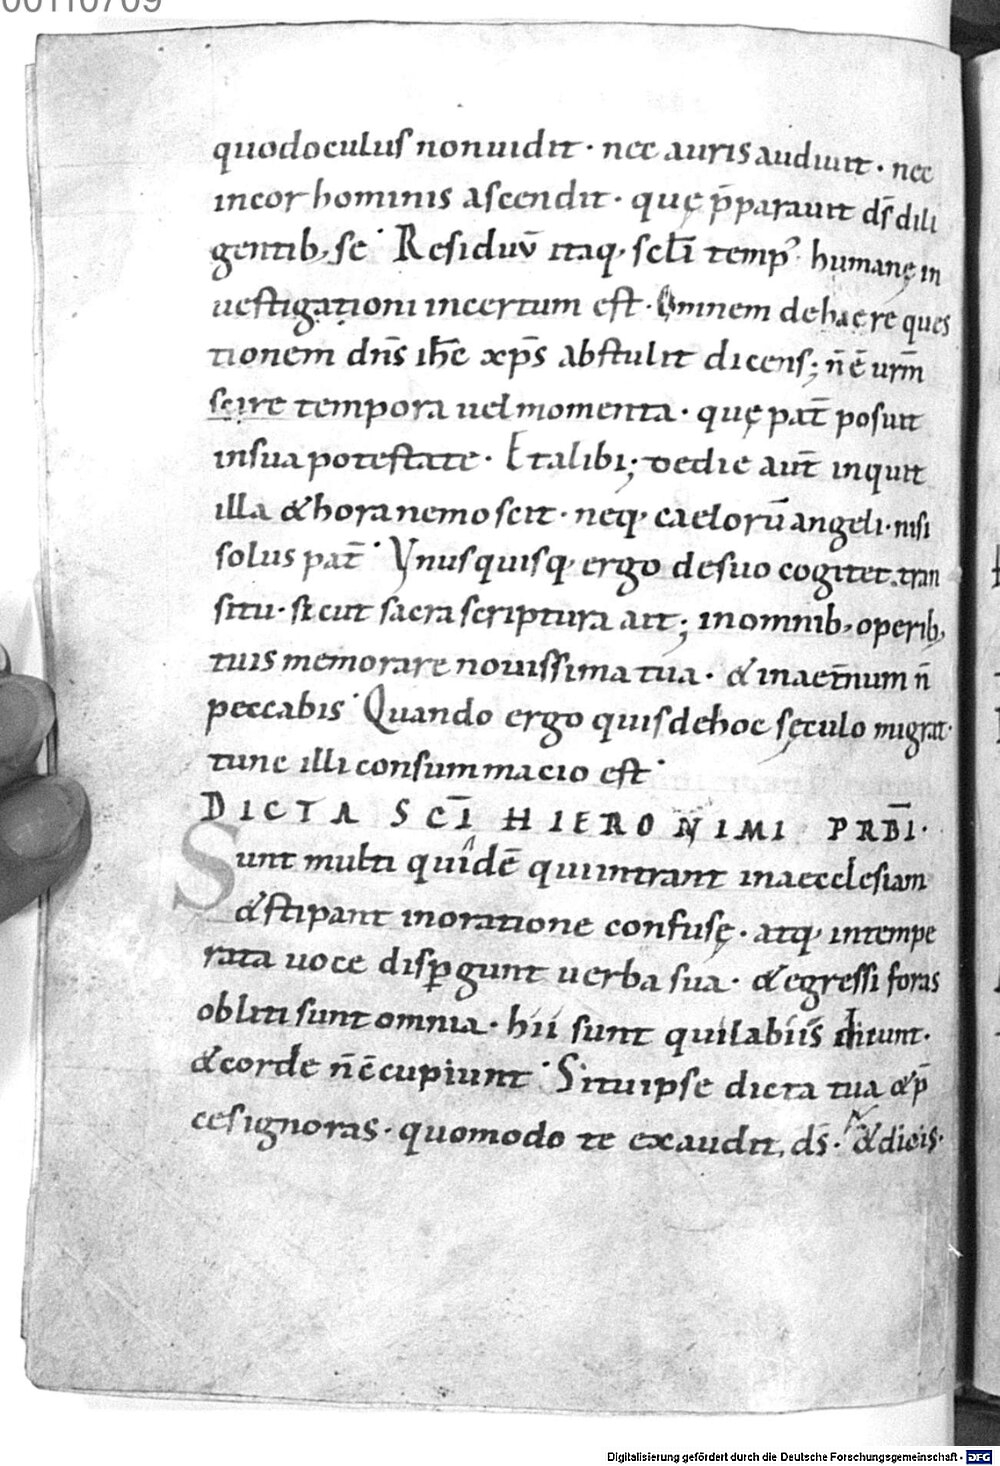 00110709
quod oculus non uidit · nec auris audiuit · nec
in cor hominis ascendit · quę p̄parauit ds̄ dili
gentib; se · Residuū itaq; scl̄i temp᾽ · humanę in
uestigationi incertum est · Omnem de hac re ques
tionem dn̄s ih̄c xp̄s abstulit dicens; n̄ ē urm̄
scire tempora uel momenta · quę pat̄ posuit
in sua potestate · Et alibi; De die aut̄ inquit
illa & hora nemo scit · neq; caelorū angeli · nisi
solus pat̄ · Vnusquisq; ergo de suo cogitet tran
situ · sicut sacra scriptura ait; in omnib; operib;
tuis memorare nouissima tua · & in aet̄num n̄
peccabis · Quando ergo quis de hoc sęculo migrat ·
tunc illi consummacio est ·
DICTA SC̄I HIERONIMI PRB̄I ·
Sunt multi quidē qui intrant in aecclesiam
& stipant in oratione confusę · atq; intempe
rata uoce disꝑgunt uerba sua · & egressi foras
obliti sunt omnia · hii sunt qui labiis
& corde n̄ c̄cupiunt · Si tu ipse dicta tua & p̄
ces ignoras · quomodo te exaudit ds̄ · & dicis ·
Digitalisierung gefördert durch die Deutsche Forschungsgemeinschaft · DFG